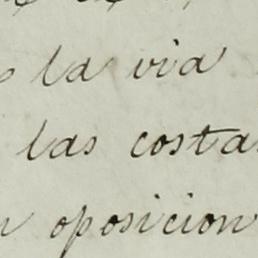 la via
las costa
oposicion